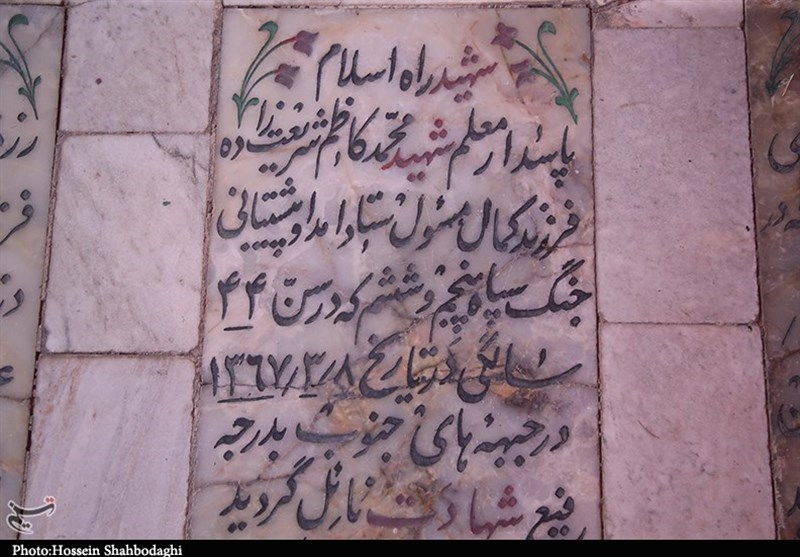 شهید راه اسلام
پاسدار معلم شهید محمد کاظم شریعت زاده
فرزند کمال مسئول ستاد امداد و پشتیبانی
جنگ سپاه پنجم و ششم که در سن ۴۴
سالگی در تاریخ ۱۳۶۷/۳/۸
در جبهه های جنوب بدرجه
رفیع شهادت نائل گردید
تسنیم
Photo:Hossein Shahbodaghi